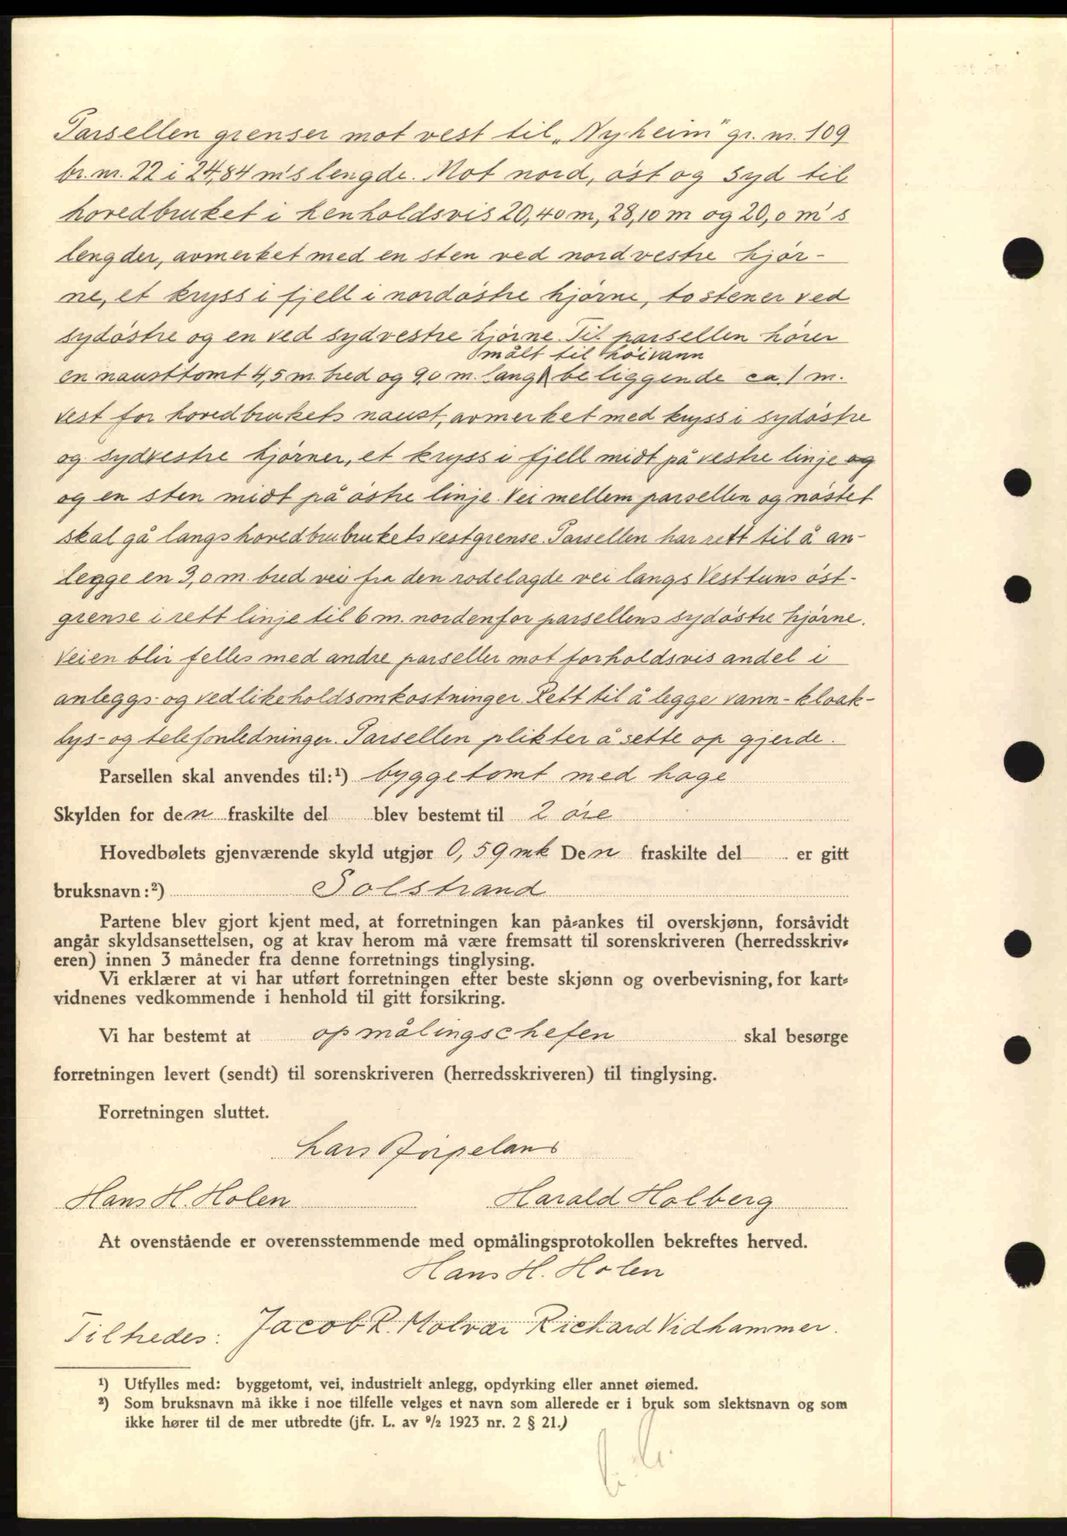 Parsellen grenser mot vest til „Nyheim" gr. nr. 109
br. nr. 22 i 24,84 m's lengde. Mot nord, øst og syd til
hovedbruket i henholdsvis 20,40 m, 28,10 m og 20,0 m's
lengder, avmerket med en sten ved nordvestre hjør-
ne, et kryss i fjell i nordøstre hjørne, to stener ved
sydøstre og en ved sydvestre hjørne. Til parsellen hører
målt til høivann
en nausttomt 4,5 m. bred og 9,0 m. lang beliggende ca. 1 m.
vest for hovedbrukets naust, avmerket med kryss i sydøstre
og sydvestre hjørner, et kryss i fjell midt på vestre linje og
og en sten midt på østre linje. Vei mellem parsellen og nøstet
skal gå langs hovedbrubrukets vestgrense. Parsellen har rett til å an-
legge en 3,0 m. bred vei fra den rodelagde vei langs Vesttuns øst-
grense i rett linje til 6 m. nordenfor parsellens sydøstre hjørne.
Veien blir felles med andre parseller mot forholdsvis andel i
anleggs- og vedlikeholdsomkostninger. Rett til å legge vann- kloak-
lys- og telefonledninger. Parsellen plikter å sette op gjerde.
Parsellen skal anvendes til:¹) byggetomt med hage
Skylden for den fraskilte del blev bestemt til 2 øre
Hovedbølets gjenværende skyld utgjør 0,59 mk Den fraskilte del er gitt
bruksnavn:²) Solstrand
Partene blev gjort kjent med, at forretningen kan på-ankes til overskjønn, forsåvidt
angår skyldsansettelsen, og at krav herom må være fremsatt til sorenskriveren (herredsskriv-
eren) innen 3 måneder fra denne forretnings tinglysing.
Vi erklærer at vi har utført forretningen efter beste skjønn og overbevisning, for kart-
vidnenes vedkommende i henhold til gitt forsikring.
Vi har bestemt at opmålingschefen skal besørge
forretningen levert (sendt) til sorenskriveren (herredsskriveren) til tinglysing.
Forretningen sluttet.
Lars Rørpeland
Hans H. Holen Harald Holberg
At ovenstående er overensstemmende med opmålingsprotokollen bekreftes herved.
Hans H. Holen
Tilstedes: Jacob R. Molvær Richard Vidhammer.
¹) Utfylles med: byggetomt, vei, industrielt anlegg, opdyrking eller annet øiemed.
²) Som bruksnavn må ikke i noe tilfelle velges et navn som allerede er i bruk som slektsnavn og som
ikke hører til de mer utbredte (jfr. L. av ⁹/₂ 1923 nr. 2 § 21.)